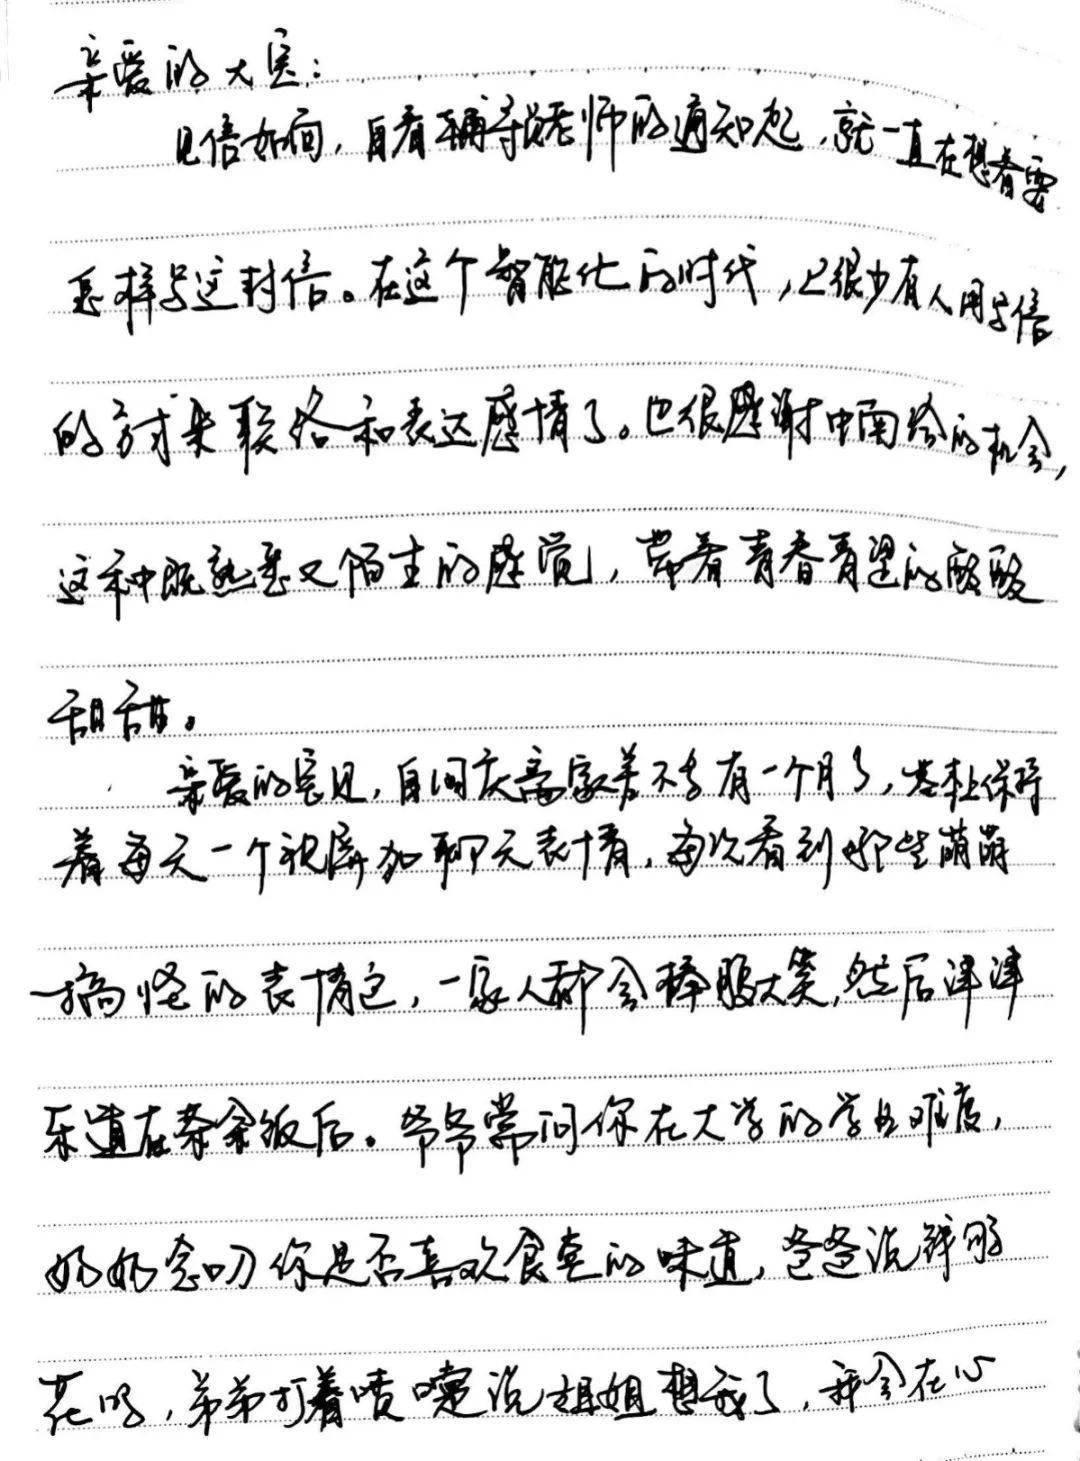 亲爱的大宝：
见信如面，自看辅导员老师的通知起，就一直在想着要
怎样写这封信。在这个智能化的时代，已很少有人用写信
的方式来联络和表达感情了。也很感谢中南给的机会，
这种既熟悉又陌生的感觉，带着青春青涩的酸酸
甜甜。
亲爱的宝贝，自国庆离家差不多有一个月了，基本上保持
着每天一个视屏加聊天表情，每次看到那些萌萌
搞怪的表情包，一家人都会捧腹大笑，然后津津
乐道在茶余饭后。爷爷常问你在大学的学业难度，
奶奶念叨你是否喜欢食堂的味道，爸爸说
花的，弟弟打着喷嚏说姐姐想我了，我会在心